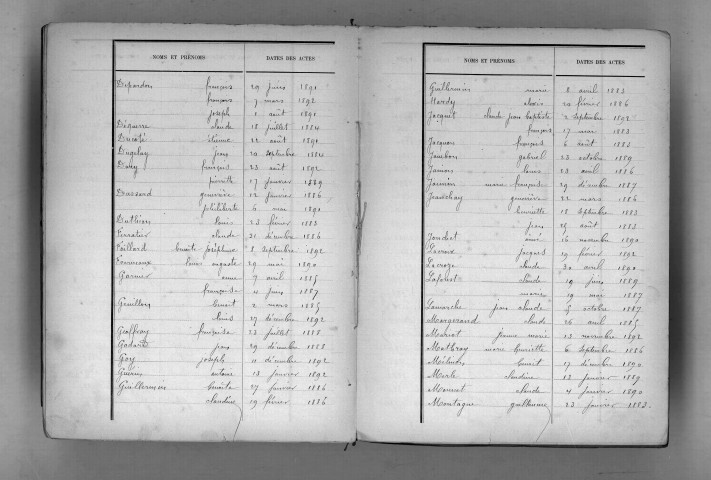 NOMS ET PRÉNOMS DATES DES ACTES
Depardon françois 29 juin 1891
françois 7 mars 1892
joseph 1 août 1891
Déguerre claude 18 juillet 1884
étienne 22 août 1891
Dugelay jean 20 septembre 1884
françois 23 août 1892
pierrette 17 janvier 1889
Dussard geneviève 12 janvier 1886
philiberte 6 mai 1891
Duthion louis 23 février 1883
Ferratier claude 31 décembre 1886
Faillard benoite joséphine 8 septembre 1892
Fourneaux louis auguste 29 mai 1890
Garnier anne 9 avril 1885
françoise 4 juin 1887
Guillon benoit 2 mars 1885
louis 27 décembre 1892
Geoffray françoise 23 juillet 1888
Godard jean 29 décembre 1888
Goy joseph 11 décembre 1892
antoine 13 janvier 1892
Guillermin benoite 27 janvier 1886
claudine 19 février 1886
NOMS ET PRÉNOMS DATES DES ACTES
Guillermin marie 8 avril 1883
Hardy alexis 20 février 1886
Jacquet claude jean baptiste 2 septembre 1892
françois 17 mai 1883
françois 6 août 1883
Jambon gabriel 23 octobre 1889
louis 23 avril 1886
marie françoise 29 décembre 1887
geneviève 22 mars 1886
henriette 18 septembre 1883
jean 25 août 1883
16 novembre 1890
Lacroix jacques 19 février 1892
claude 30 avril 1890
Laforest claude 19 juin 1889
marie 19 mai 1887
Lamarche jean claude 5 octobre 1887
Margerand claude 26 avril 1885
13 novembre 1892
Mathray marie henriette 6 septembre 1886
benoit 17 décembre 1890
Merle claudine 13 janvier 1889
Monnet claude 4 janvier 1890
Montagne guillaume 23 janvier 1883